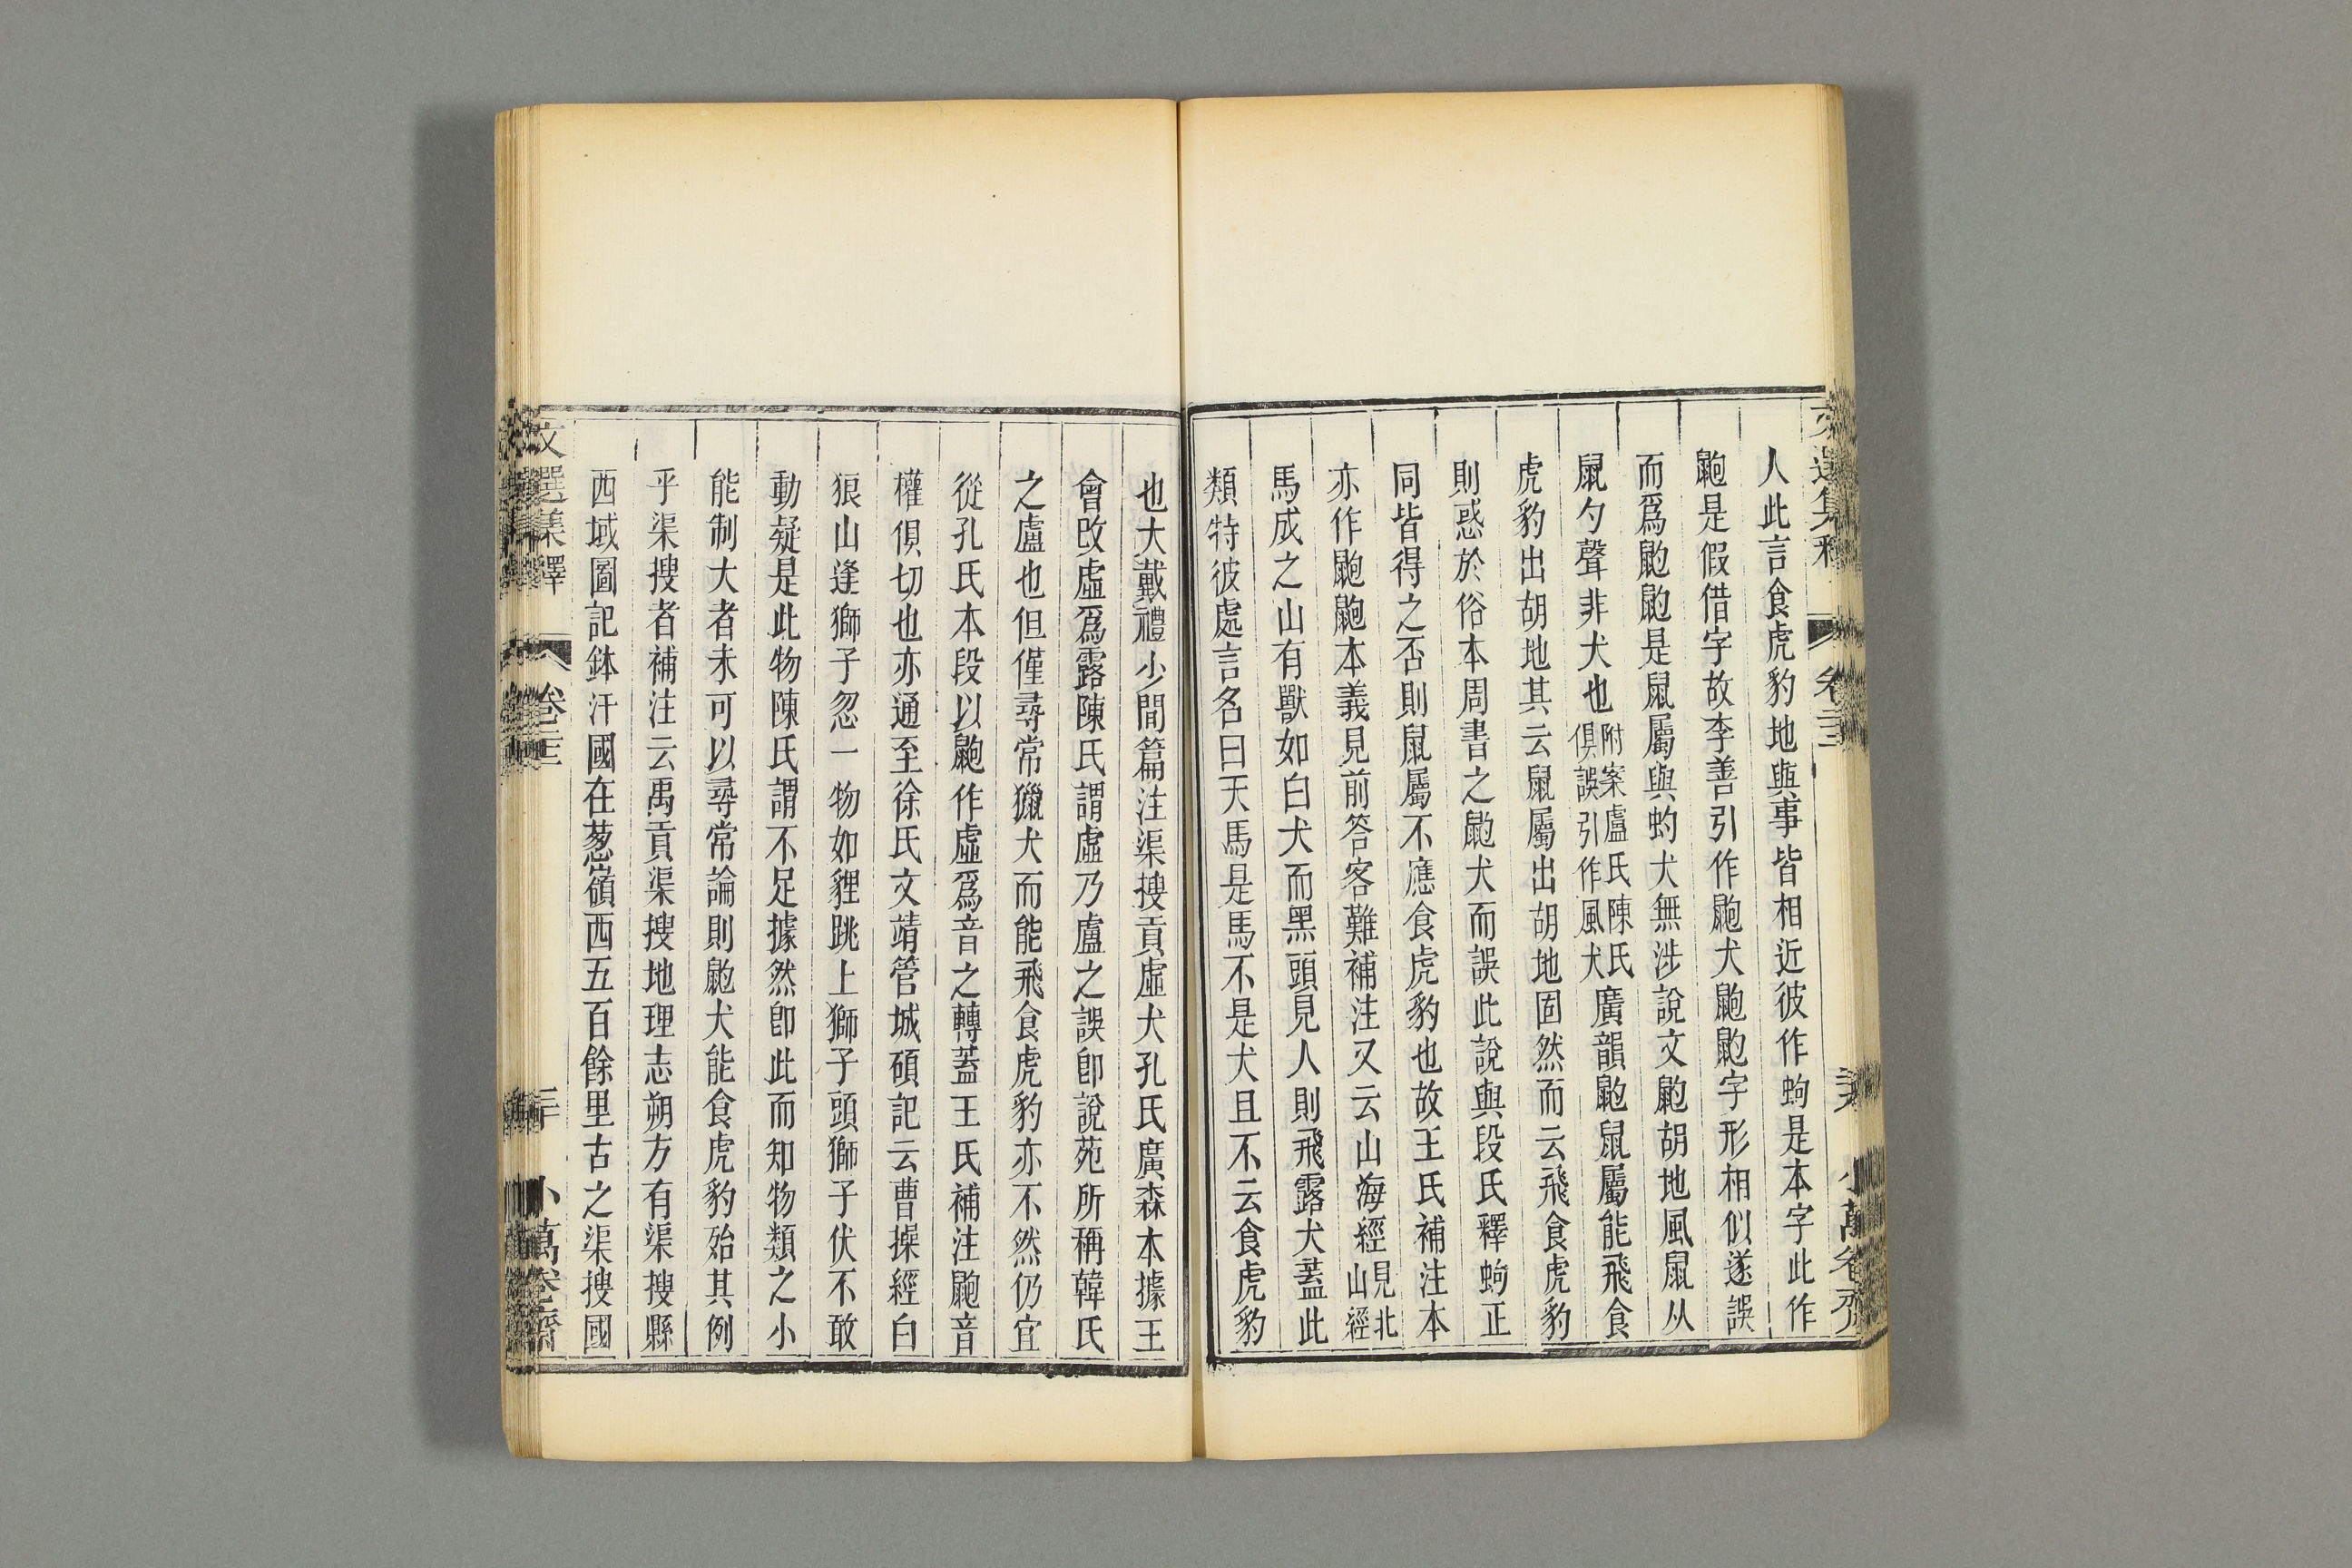 文選集釋 卷二十三 小萬卷齋
人此言食虎豹地與事皆相近彼作蚼是本字此作
鼩是假借字故李善引作鼩犬鼩鼢字形相似遂誤
而爲鼩鼩是鼠屬與蚼犬無涉說文鼩胡地風鼠从
鼠勺聲非犬也附案盧氏陳氏俱誤引作風犬廣韻鼩鼠屬能飛食
虎豹出胡地其云鼠屬出胡地固然而云飛食虎豹
則惑於俗本周書之鼩犬而誤此說與段氏釋蚼正
同皆得之否則鼠屬不應食虎豹也故王氏補注本
亦作鼩鼩本義見前答客難補注又云山海經見北山經
馬成之山有獸如白犬而黑頭見人則飛露犬蓋此
類特彼處言名曰天馬是馬不是犬且不云食虎豹
也大戴禮少閒篇注渠搜貢虛犬孔氏廣森本據王
會改虛爲露陳氏謂虛乃盧之誤卽說苑所稱韓氏
之盧也但僅尋常獵犬而能飛食虎豹亦不然仍宜
從孔氏本段以鼩作虛爲音之轉蓋王氏補注鼩音
權俱切也亦通至徐氏文靖管城碩記云曹操經白
狼山逢獅子忽一物如貍跳上獅子頭獅子伏不敢
動疑是此物陳氏謂不足據然卽此而知物類之小
能制大者未可以尋常論則鼩犬能食虎豹殆其例
乎渠搜者補注云禹貢渠搜地理志朔方有渠搜縣
西域圖記鉢汗國在葱嶺西五百餘里古之渠搜國
文選集釋 卷二十三 三十 小萬卷齋